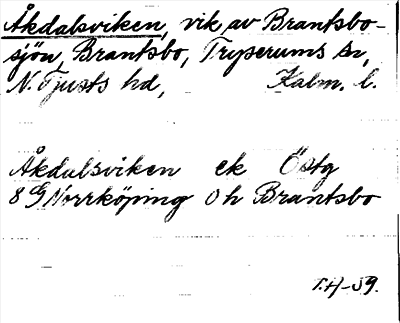 Åkdalsviken, vik av Brantsbo-
sjön, Brantsbo, Tryserums sn,
N. Tjusts hd, Kalm. l.
Åkdalsviken ek Östg
8 G Norrköping 0 h Brantsbo
T.H-59.